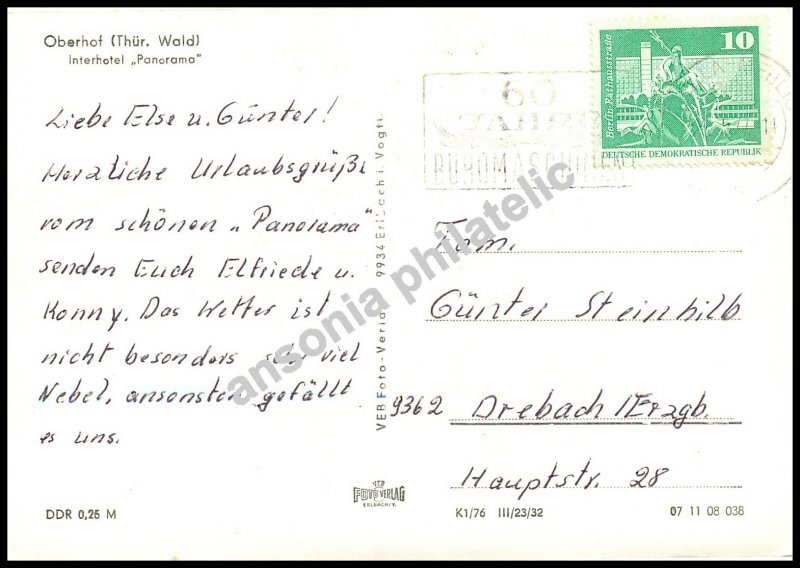 Oberhof (Thür. Wald)
Interhotel „Panorama"
Liebe Else u. Günter!
Herzliche Urlaubsgrüße
vom schönen „Panorama"
senden Euch Elfriede u.
Konny. Das Wetter ist
nicht besonders sehr viel
Nebel, ansonsten gefällt
es uns.
DDR 0,25 M
VEB Foto-Verlag 9934 Erlbach i. Vogtl.
VEB
FOTO VERLAG
ERLBACH/V.
60
JAHRE
BÜROMASCHINEN
10
Berlin·Rathausstraße
DEUTSCHE DEMOKRATISCHE REPUBLIK
Fam.
Günter Steinhilb
9362 Drebach/Erzgb.
Hauptstr. 28
K1/76 III/23/32 07 11 08 038
ansonia philatelic